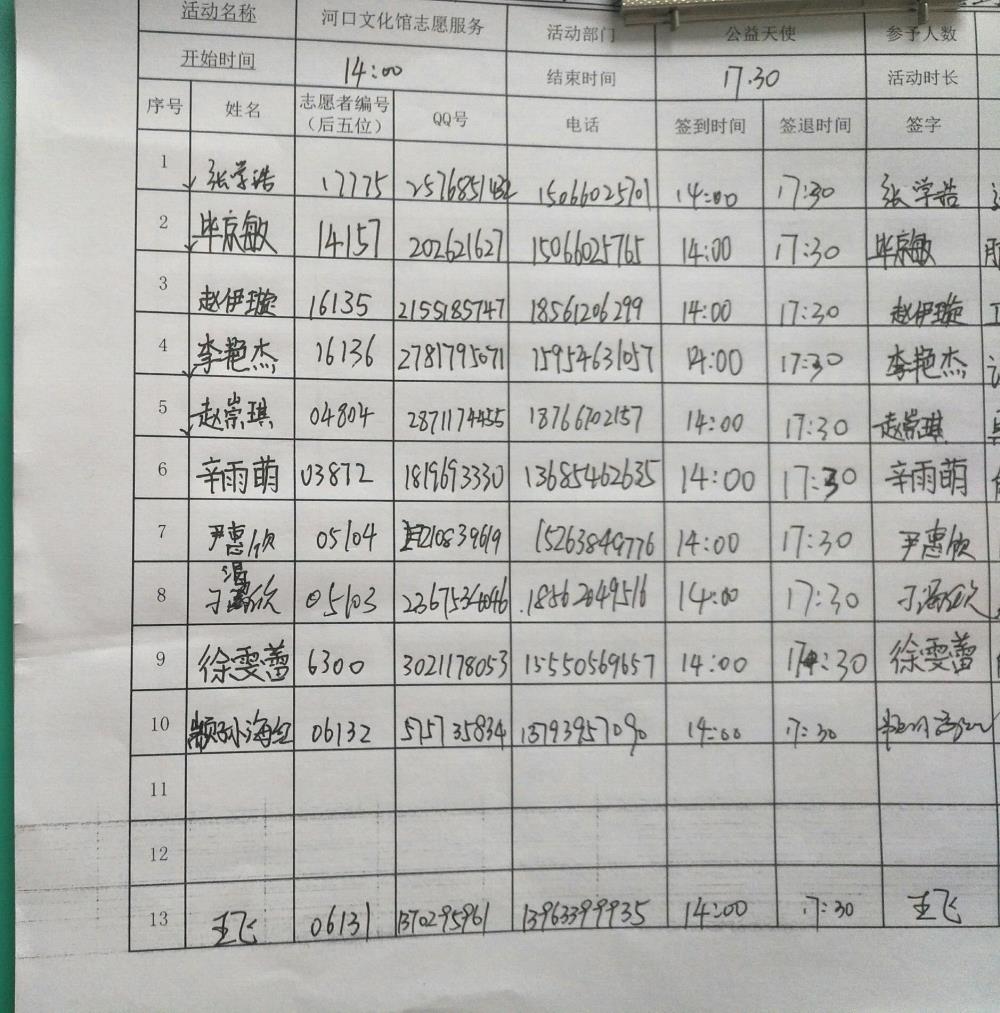 活动名称 河口文化馆志愿服务 活动部门 公益天使 参予人数
开始时间 14:00 结束时间 17.30 活动时长
序号 姓名 志愿者编号（后五位） QQ号 电话 签到时间 签退时间 签字
1 张学浩 17775 2576851432 15066025701 14:00 17:30 张学浩
2 毕京敏 14157 202621627 15066025765 14:00 17:30 毕京敏
3 赵伊璇 16135 2155185747 18561206299 14:00 17:30 赵伊璇
4 李艳杰 16136 2781795071 15954631057 14:00 17:30 李艳杰
5 赵崇琪 04804 2871174455 18766702157 14:00 17:30 赵崇琪
6 辛雨萌 03872 1819693330 13685462635 14:00 17:30 辛雨萌
7 尹惠欣 05104 15263849776 14:00 17:30 尹惠欣
8 05103 18562049516 14:00 17:30
9 徐雯蕾 6300 3021178053 15550569657 14:00 17:30 徐雯蕾
10 颛孙海红 06132 575735834 14:00 17:30
11
12
13 王飞 06131 1370295961 13963399935 14:00 17:30 王飞